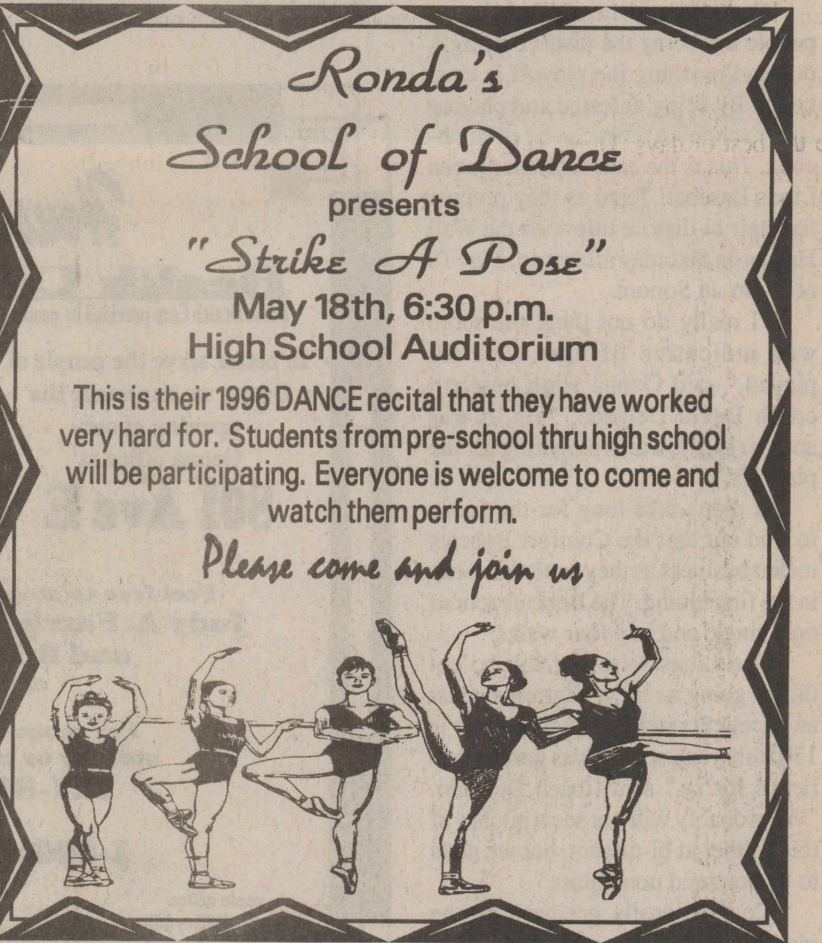 Ronda's
School of Dance
presents
"Strike A Pose"
May 18th, 6:30 p.m.
High School Auditorium
This is their 1996 DANCE recital that they have worked
very hard for. Students from pre-school thru high school
will be participating. Everyone is welcome to come and
watch them perform.
Please come and join us